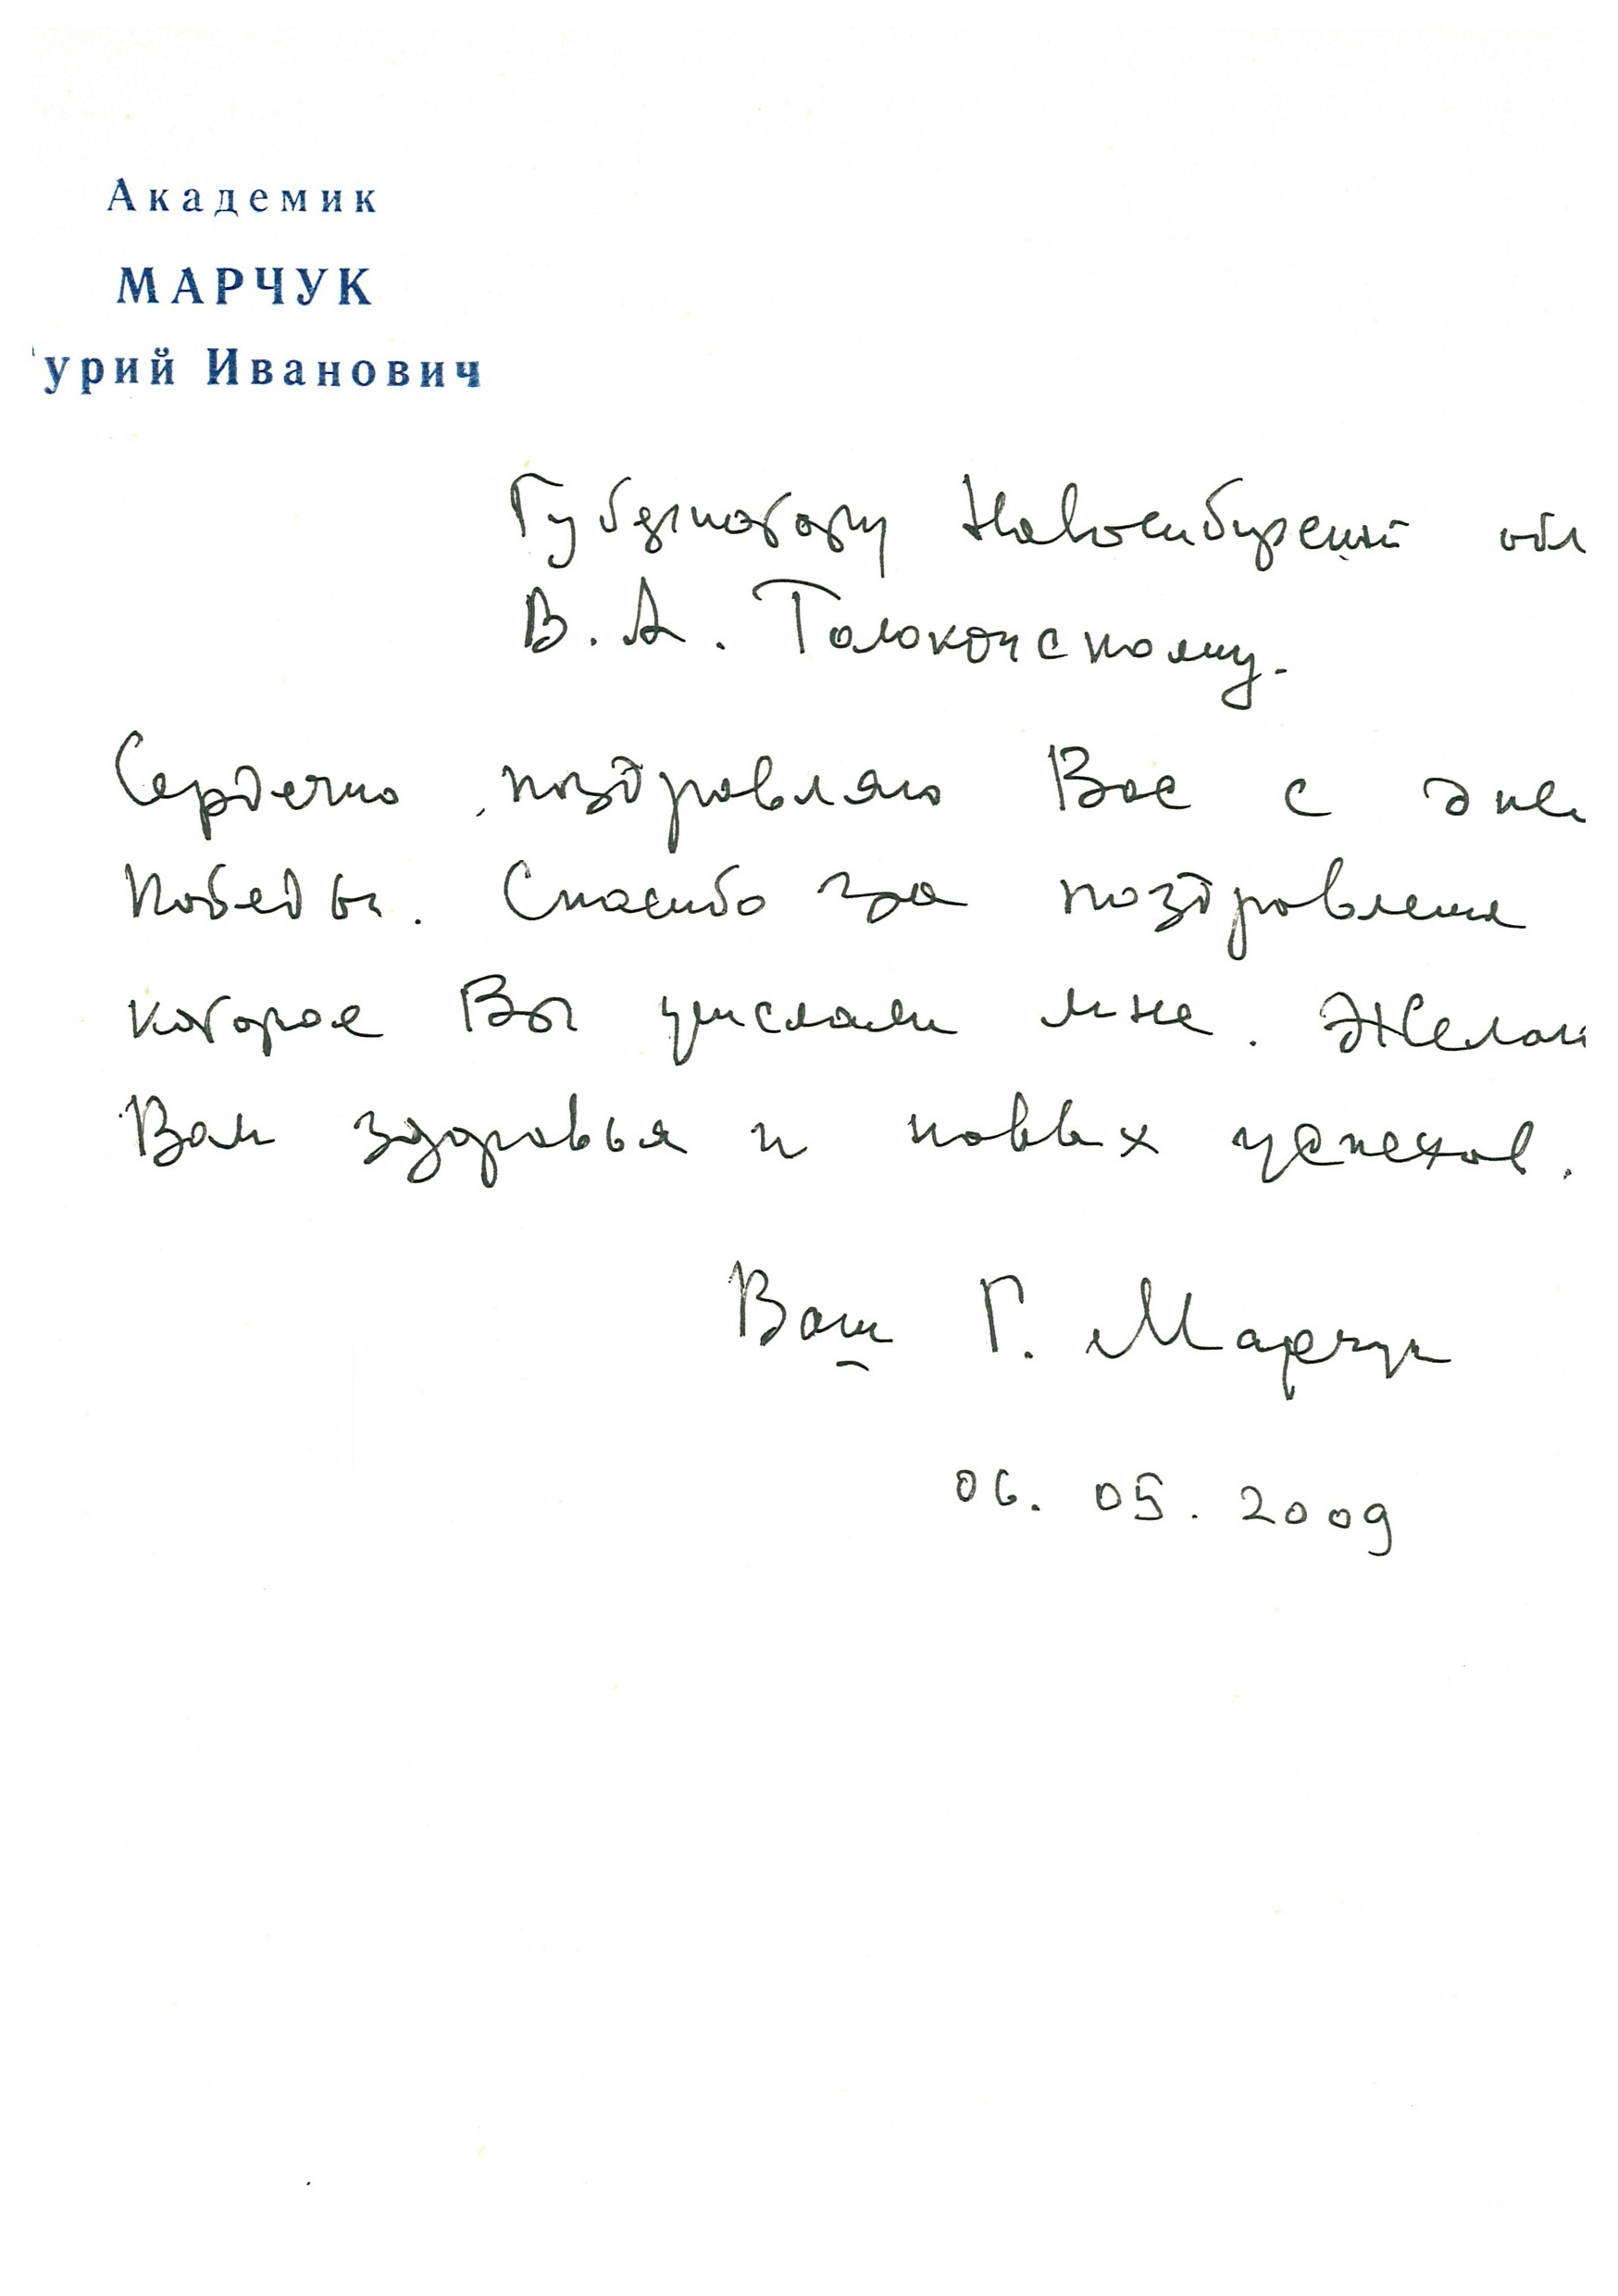 Академик
МАРЧУК
урий Иванович
Губернатору Новосибирской обл
В. А. Толоконскому.
Сердечно поздравляю Вас с дне
Победы. Спасибо за поздравление
которое Вы прислали мне. Желаю
Вам здоровья и новых успехов.
Ваш Г. Марчук
06. 05. 2009